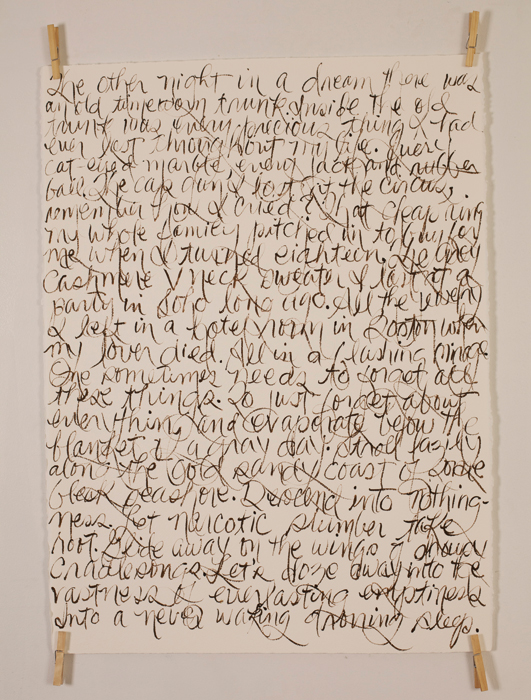 The other night in a dream there was
an old timeworn trunk. Inside the old
trunk was every precious thing I had
ever lost throughout my life. Every
cat-eyed marble, every jack and rubber
ball. The cap gun I lost at the circus,
remember how I cried? That cheap ring
my whole family pitched in to buy for
me when I turned eighteen. The grey
Cashmere V neck sweater I lost at a
party in Soho long ago. All the jewelry
I left in a hotel room in Boston when
my lover died. All in a flashing mirage.
One sometimes needs to forget all
these things. So just forget about
everything and evaporate below the
blanket of a gray day. Stroll lazily
along the cold sandy coast of some
bleak seashore. Descend into nothing-
ness. Let narcotic slumber take
root. Glide away on the wings of drowsy
Cradlesongs. Let's doze away into the
vastness of everlasting emptiness
into a never waking droning sleep.